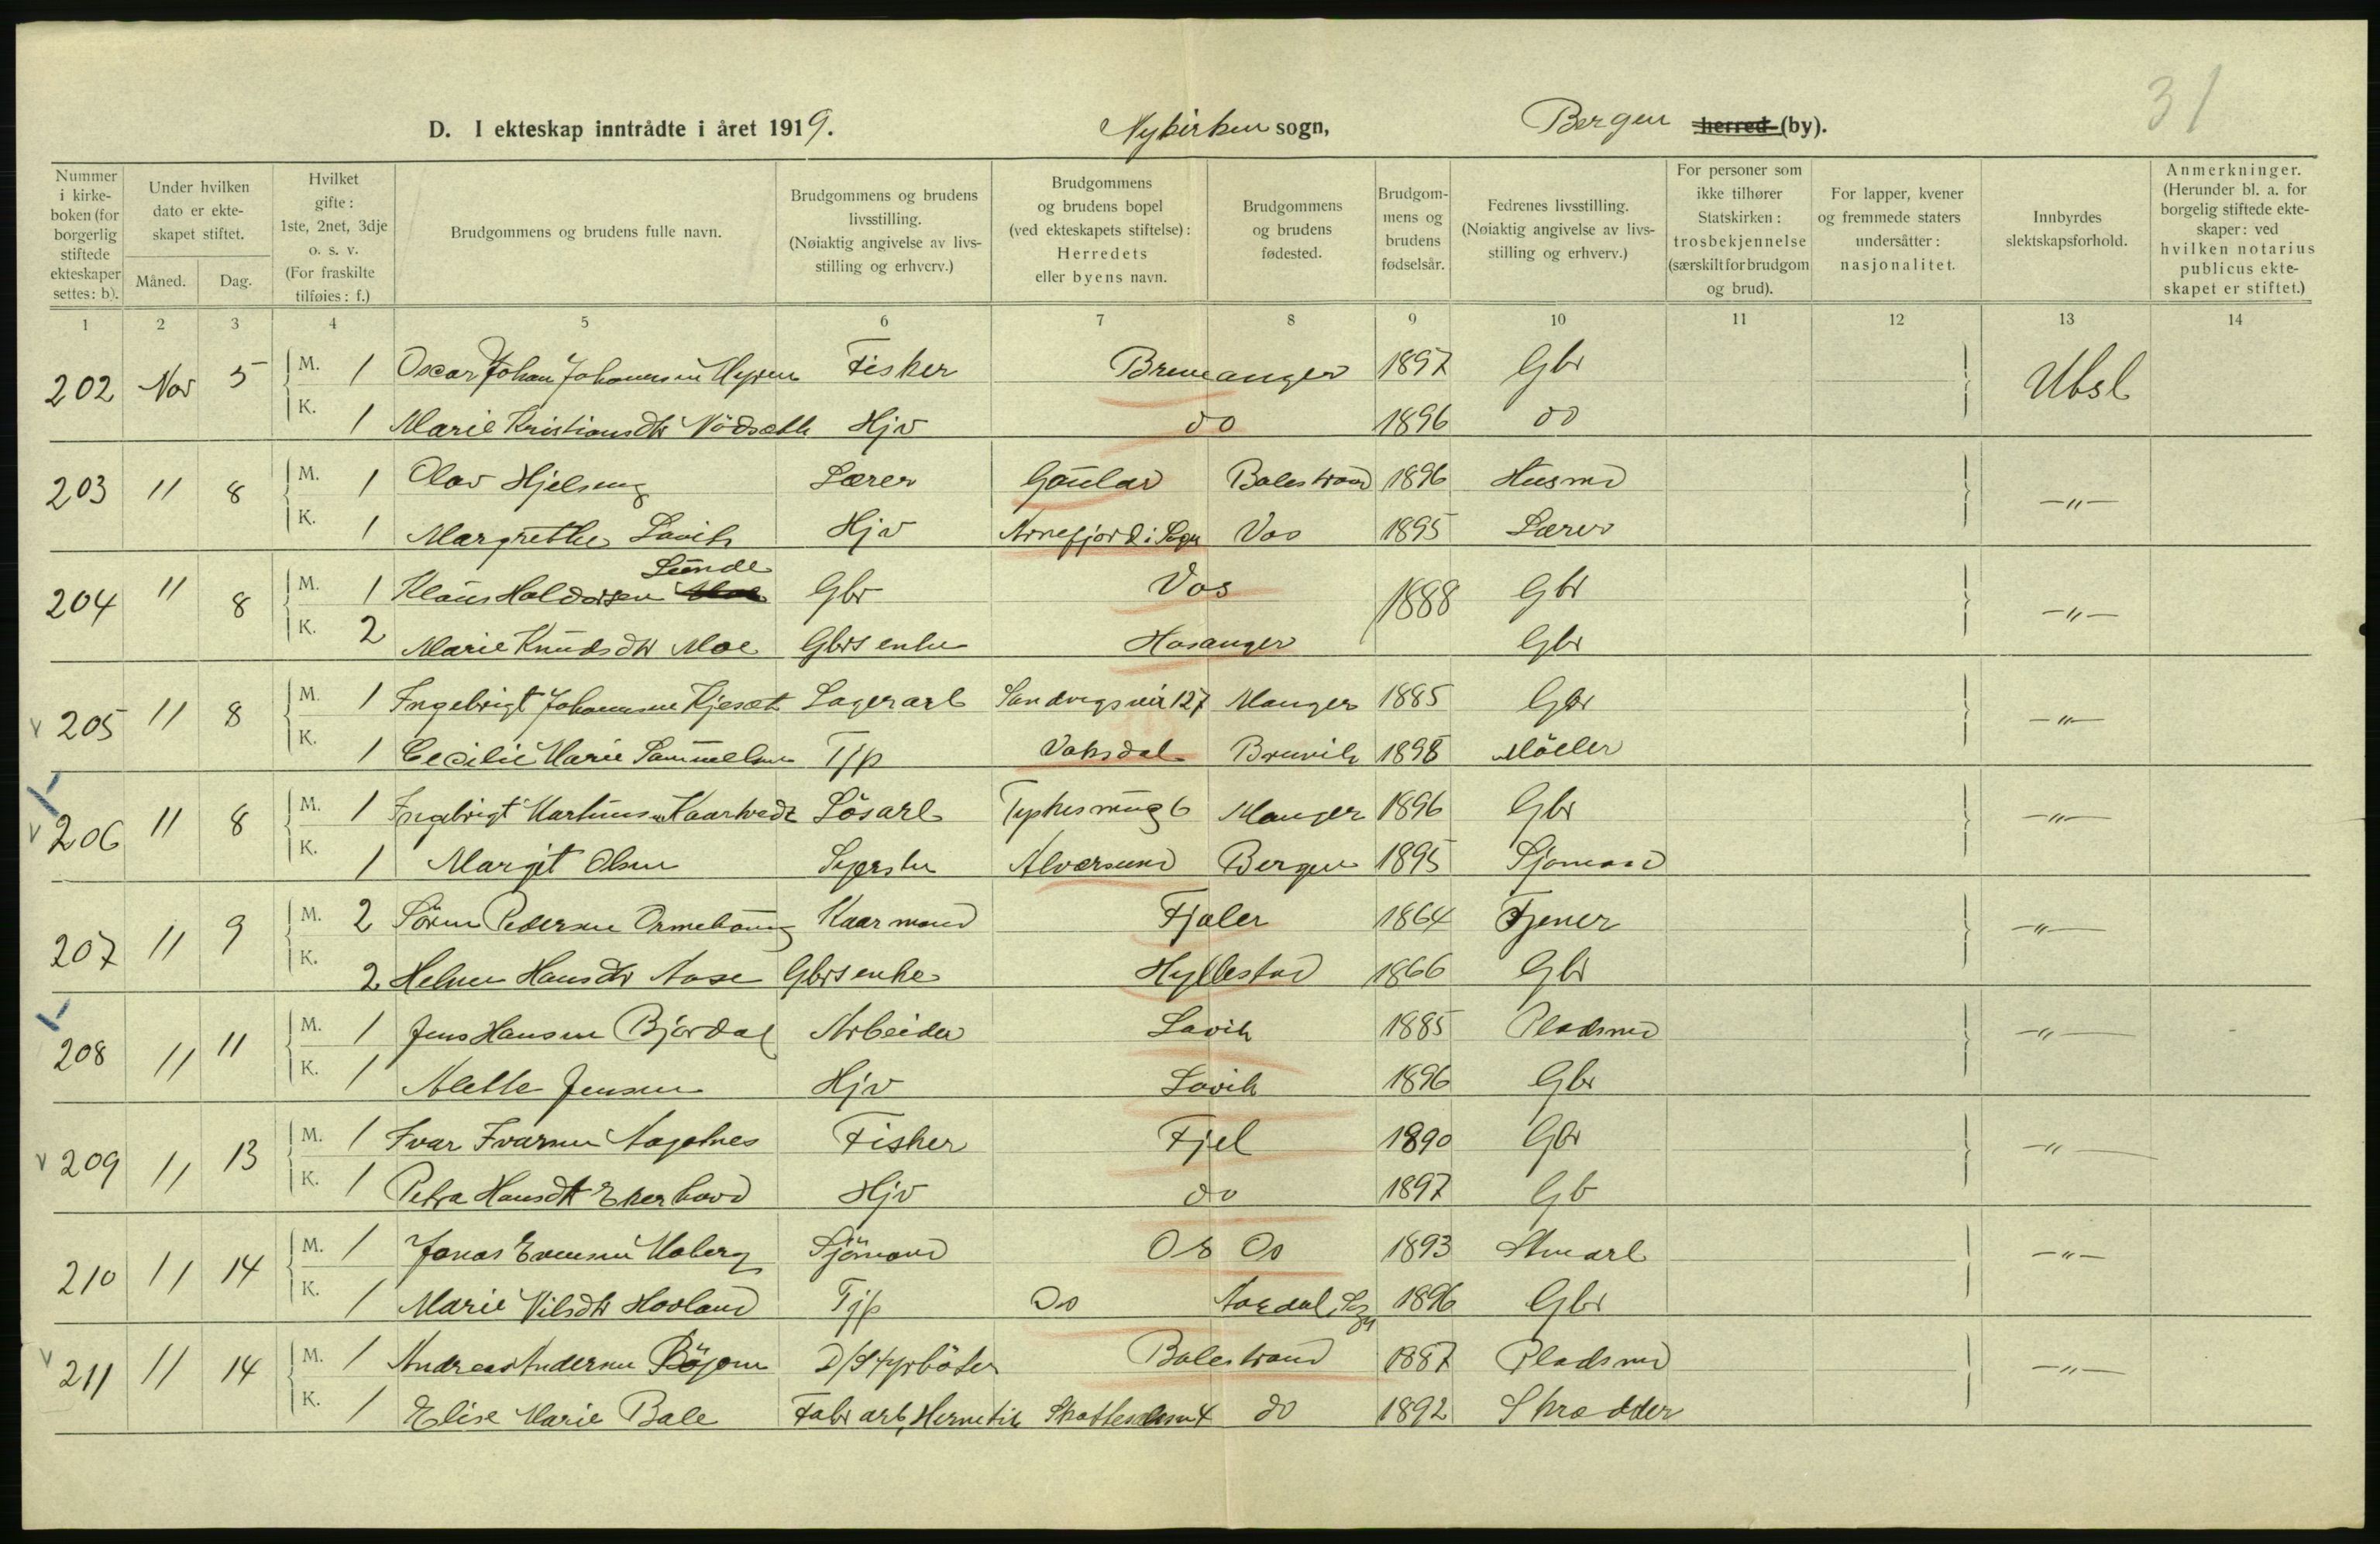 31
D. I ekteskap inntrådte i året 1919. Nykirken sogn, Bergen herred (by).
Nummer i kirke-boken (for borgerlig stiftede ekteskaper settes: b).
Under hvilken dato er ekte-skapet stiftet.
Måned. Dag.
Hvilket gifte: 1ste, 2net, 3dje o. s. v. (For fraskilte tilføies: f.)
Brudgommens og brudens fulle navn.
Brudgommens og brudens livsstilling. (Nøiaktig angivelse av livs-stilling og erhverv.)
Brudgommens og brudens bopel (ved ekteskapets stiftelse): Herredets eller byens navn.
Brudgommens og brudens fødested.
Brudgom-mens og brudens fødselsår.
Fedrenes livsstilling. (Nøiaktig angivelse av livs-stilling og erhverv.)
For personer som ikke tilhører Statskirken: trosbekjennelse (særskilt for brudgom og brud).
For lapper, kvener og fremmede staters undersåtter: nasjonalitet.
Innbyrdes slektskapsforhold.
Anmerkninger. (Herunder bl. a. for borgelig stiftede ekte-skaper: ved hvilken notarius publicus ekte-skapet er stiftet.)
1 2 3 4 5 6 7 8 9 10 11 12 13 14
202 Nov 5 M. 1 Oscar Johan Johannesen Fisker Bremanger 1897 Gbr Ubsl
K. 1 Marie Kristiansdtr Hjv do 1896 do
203 " 8 M. 1 Olav Lærer Gaular Balestrand 1896 Husmd —"—
K. 1 Margrethe Lavik Hjv Arnefjord i Sogn Vos 1895 Lærer
Lunde
204 " 8 M. 1 Klaus Haldorsen Gbr Vos 1888 Gbr —"—
K. 2 Marie Knudsdtr Moe Gbrs enke Hosanger Gbr
205 " 8 M. 1 Ingebrigt Johannesen Lagerarb Sandvigsvei 127 Manger 1885 Gbr —"—
K. 1 Cecilie Marie Tjp Vaksdal Bruvik 1898 Möller
206 " 8 M. 1 Ingebrigt Lösarb 6 Manger 1896 Gbr —"—
K. 1 Margit Olsen Syerske Alversund Bergen 1895 Sjömand
207 " 9 M. 2 Sören Pedersen Kaarmand Fjaler 1864 Tjener —"—
K. 2 Helene Hansdtr Aase Gbrs enke Hyllestad 1866 Gbr
208 " 11 M. 1 Jens Hansen Bjordal Arbeider Lavik 1885 Pladsmd —"—
K. 1 Alette Jensen Hjv Lavik 1896 Gbr
209 " 13 M. 1 Ivar Ivarsen Fisker Fjel 1890 Gbr —"—
K. 1 Petra Hansdtr Ekerhovd Hjv do 1897 Gb
210 " 14 M. 1 Jonas Moberg Sjömand Os Os 1893 1893 —"—
K. 1 Marie Nilsdtr Hovland Tjp Os 1896 Gbr
211 " 14 M. 1 Andreas Andersen Böjom D/S fyrböter Balestrand 1887 Pladsmd —"—
K. 1 Elise Marie Bale Fabr arb, Hermetik do 1892 Skrædder